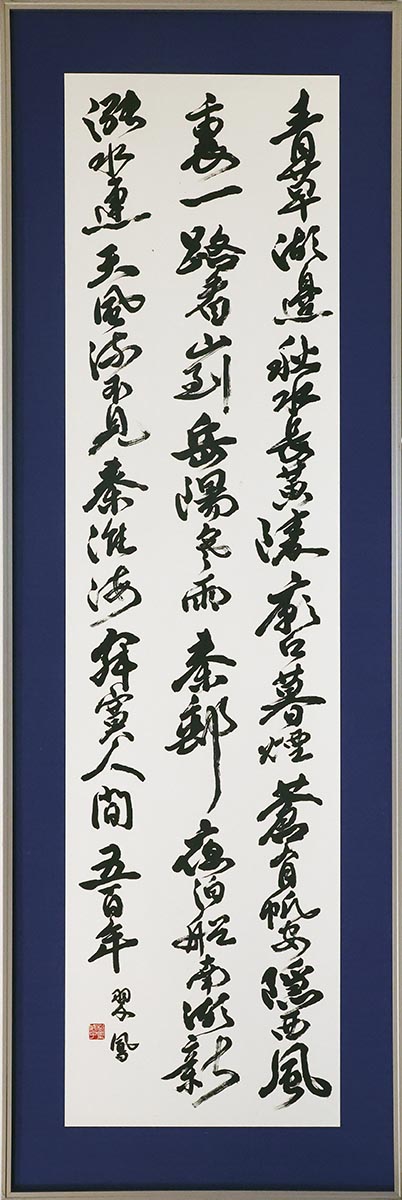 青草湖邊秋水長黄陵廟口暮煙蒼布帆安隱西風
裏一路看山到岳陽寒雨秦郵夜泊船南湖新
漲水連天風流不見秦淮海寂寞人間五百年
翠鳳